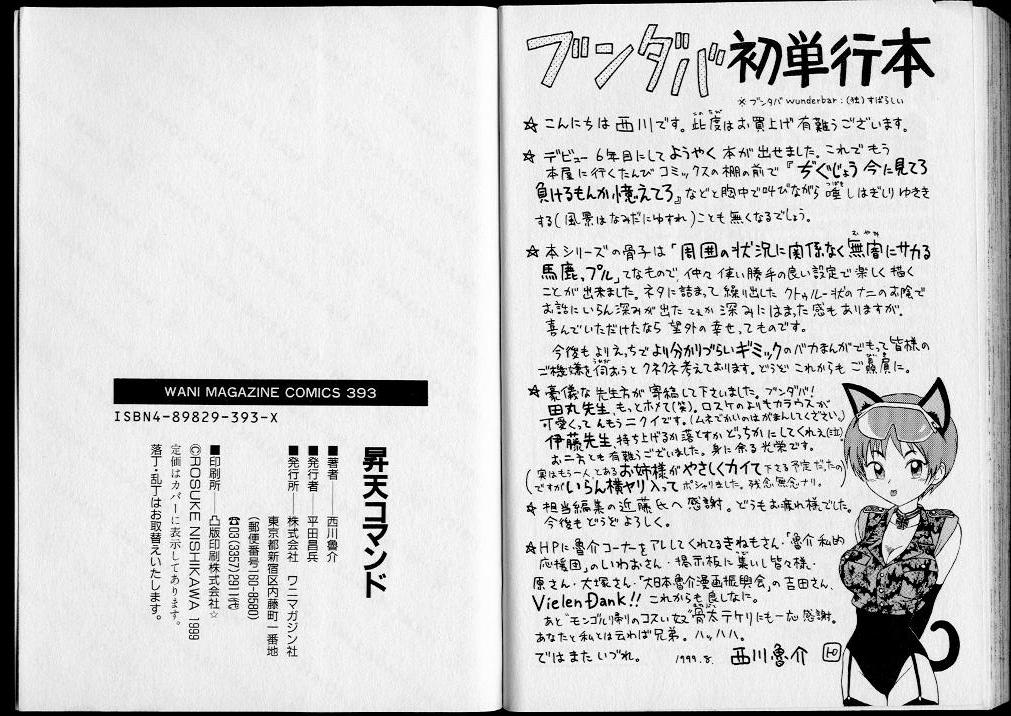 ブンダバ 初単行本
※ブンダバ wunderbar:(独)すばらしい
☆こんにちは 西川です。此度はお買上げ有難うございます。
このたび
☆デビュー6年目にしてようやく本が出せました。これでもう
本屋に行くたんびコミックスの棚の前で『ぢぐじょう今に見てろ
負けるもんか憶えてろ』などと胸中で叫びながら唾しはぎしりゆきき
つばき
する(風景はなみだにゆすれ)ことも無くなるでしょう。
☆本シリーズの骨子は「周囲の状況に関係なく無闇にサカる
むやみ
馬鹿ップル」てなもので、仲々使い勝手の良い設定で楽しく描く
ことが出来ました。ネタに詰まって繰り出したクトゥルー状のナニのお陰で
お話にいらん深みが出たてぇか深みにはまった感もありますが、
喜んでいただけたなら望外の幸せ、てものです。
今後もよりえっちでより分かりづらいギミックのバカまんがでもって皆様の
ご機嫌を伺おうとクネクネ考えております。どうぞこれからもご贔屓に。
☆豪儀な先生方が寄稿して下さいました。ブンダバ!
田丸先生、もっとホメて(笑)。ロスケのよりもカラウスが
可愛くってんもうニクイです。(ムネでかいのはがまんしてください。)
伊藤先生、持ち上げるか落とすかどっちかにしてくれぇ(泣)
お二方とも有難うございました。身に余る光栄です。
(実はもう一人であるお姉様がやさしくカイて下さる予定だったの
ですがいらん横ヤリ入ってポシャりました。残念無念ナリ。)
☆担当編集の近藤氏へ感謝。どうもお疲れ様でした。
今後もどうぞよろしく。
☆HPに魯介コーナーをアレしてくれてるきねもさん・「魯介私的
応援団」のいわおさん・掲示板に集いし皆々様・
原さん・大塚さん・「大日本魯介漫画振興会」の吉田さん、
Vielen Dank!! これからも良しなに。
あと"モンゴル帰りのコスい奴"骨太テケリにも一応感謝。
あなたと私とは云わば兄弟。ハッハハ。
ではまたいづれ。 1999.8. 西川魯介
WANI MAGAZINE COMICS 393
ISBN4-89829-393-X
昇天コマンド
■著者――西川魯介
■発行者――平田昌兵
■発行所――株式会社 ワニマガジン社
東京都新宿区内藤町一番地
(郵便番号160-8580)
☎03(3357)2911㈹
■印刷所――凸版印刷株式会社☆
©ROSUKE NISHIKAWA 1999
定価はカバーに表示してあります。
落丁・乱丁はお取替えいたします。